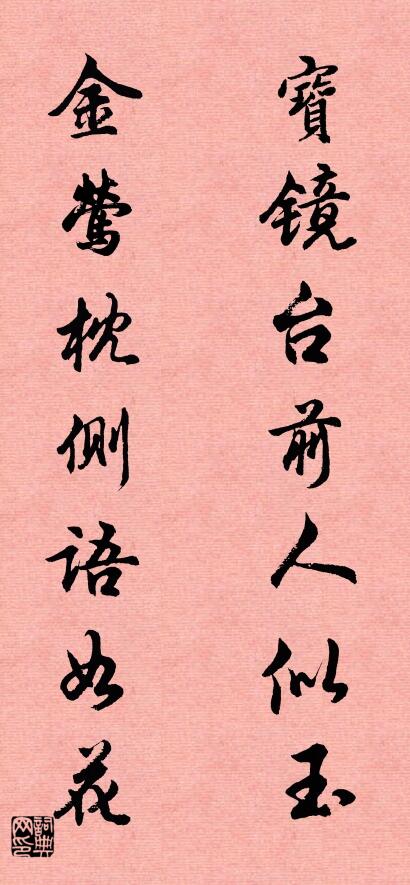 寶鏡台前人似玉
金鶯枕側語如花
詞典网印